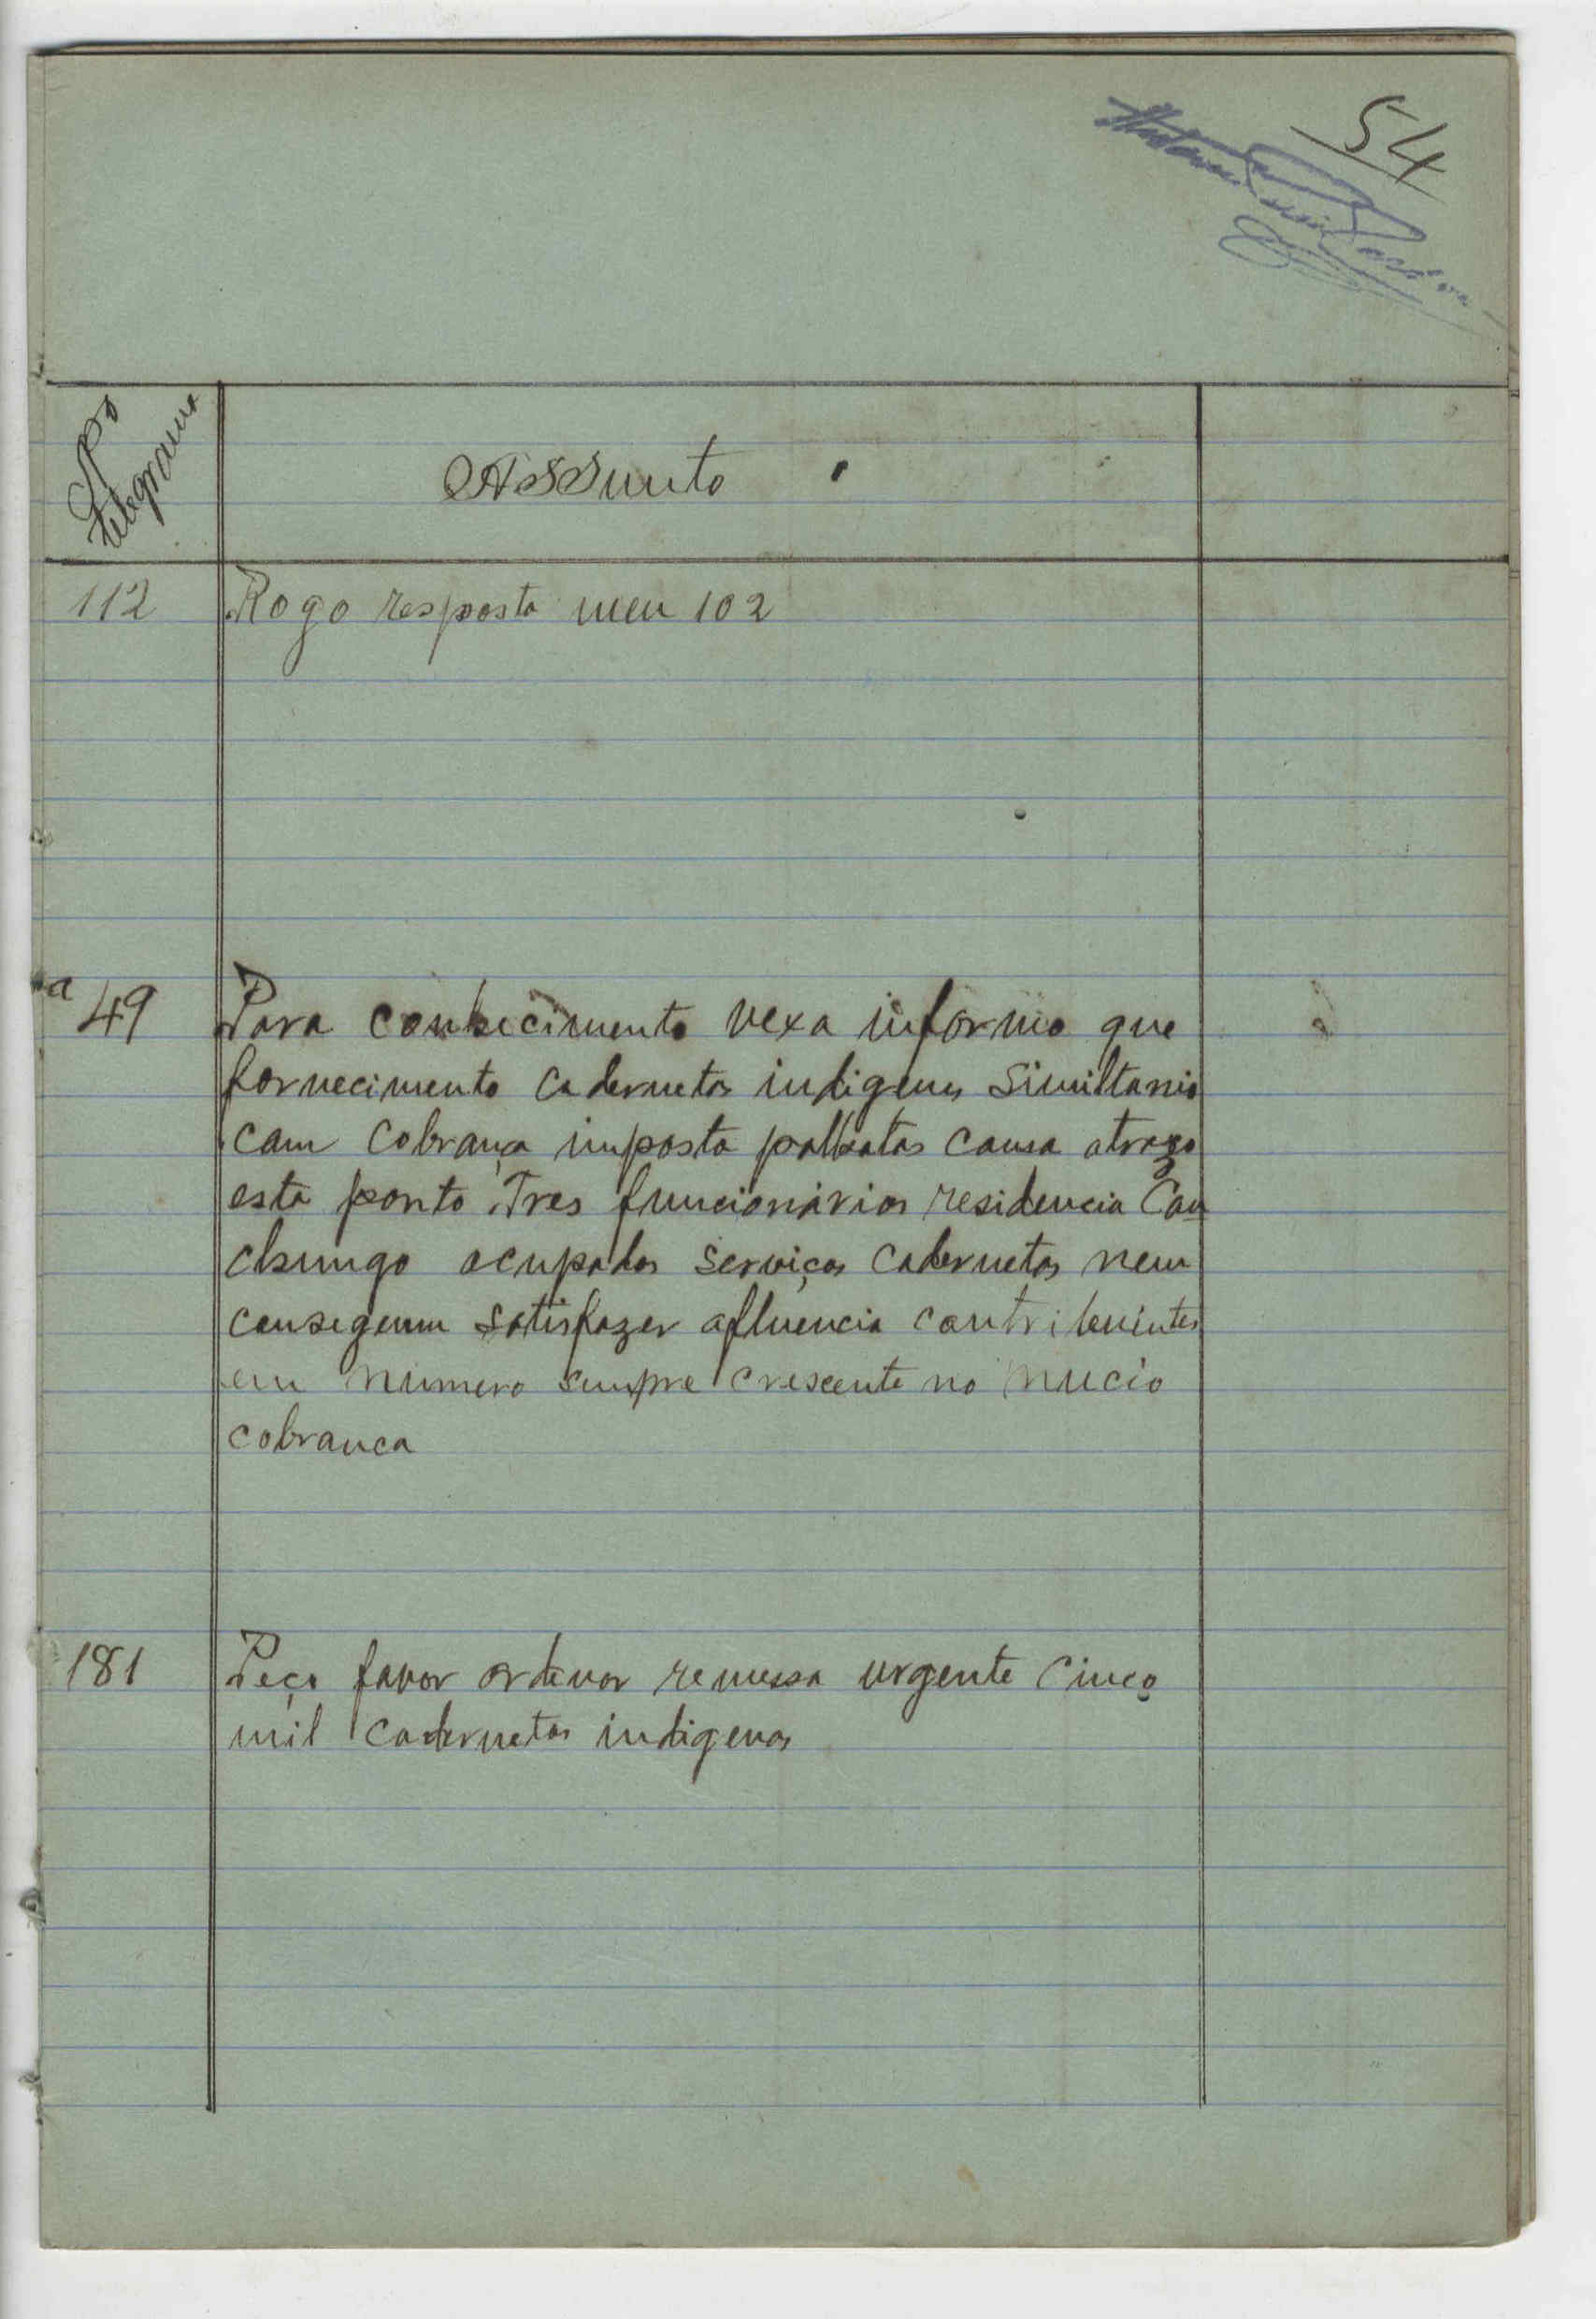 54
Nº telegrama
Assunto
112 Rogo resposta meu 102
a 49 Para conhecimento vexa informo que
fornecimento cadernetas indigenas simultanio
com cobrança imposto palhotas causa atrazo
este ponto. Tres funcionários residencia Can
chungo ocupados serviços cadernetas nem
conseguem satisfazer afluencia contribuintes
em numero sempre crescente no inicio
cobranca
181 Peço favor ordenar remessa urgente cinco
mil cadernetas indigenas